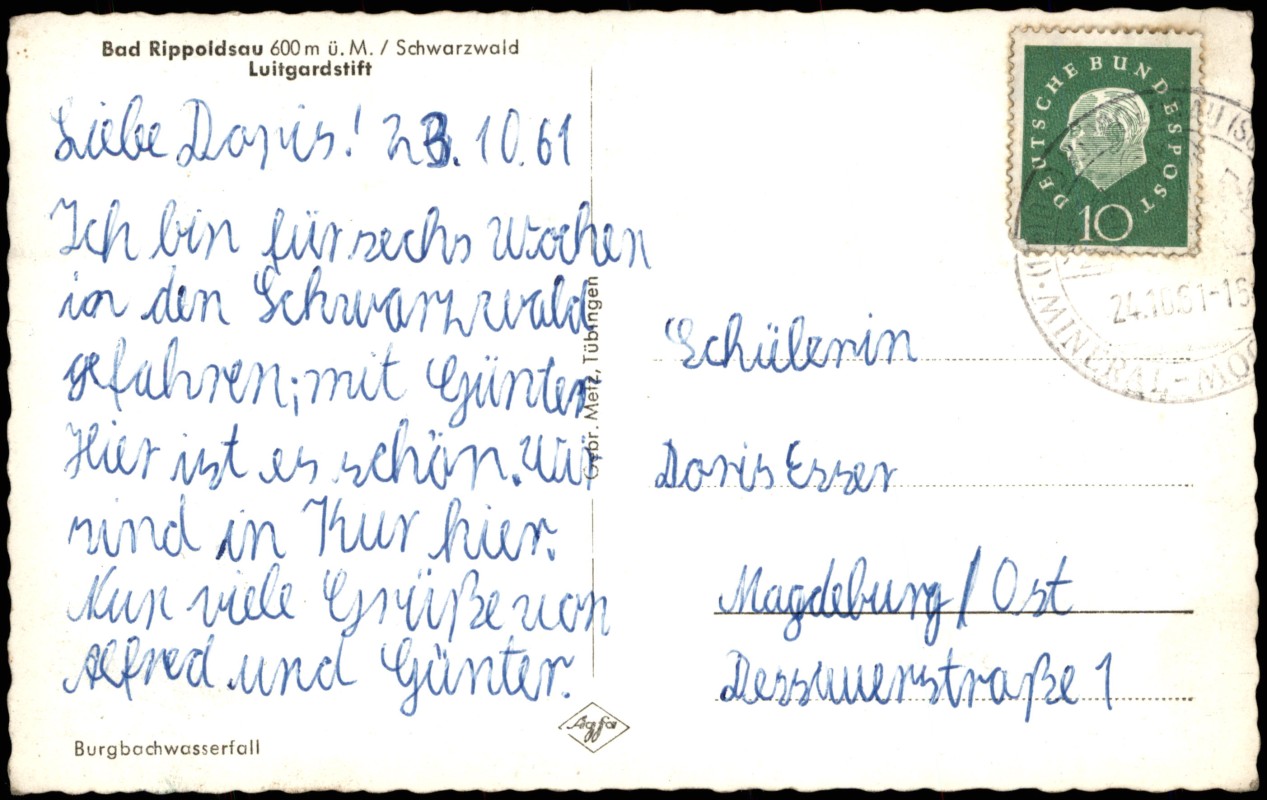 Bad Rippoldsau 600 m ü. M. / Schwarzwald
Luitgardstift
Liebe Doris! 23. 10.61
Ich bin für sechs Wochen
in den Schwarzwald
gefahren; mit Günter
Hier ist es schön. Wir
sind in Kur hier.
Nun viele Grüße von
Alfred und Günter.
Burgbachwasserfall
Gebr. Metz, Tübingen
Agfa
DEUTSCHE BUNDESPOST
10
24.10.61-18
MINERAL-MOO
Schülerin
Doris Esser
Magdeburg/Ost
Dessauerstraße 1